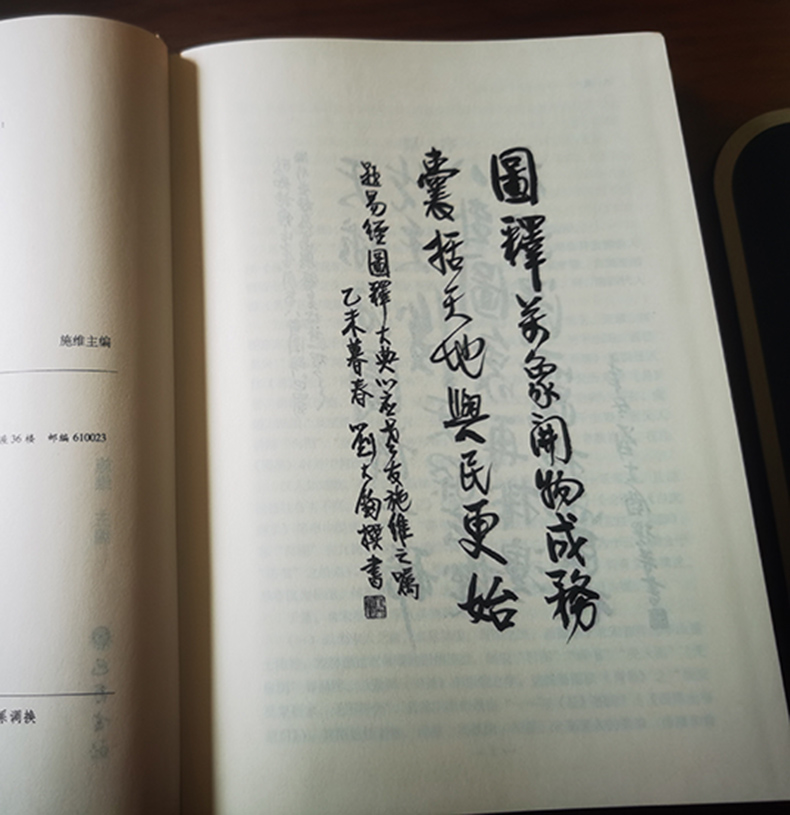 圖釋萬象開物成務
囊括天地與民更始
題易經圖釋大典以應易友施維之囑
乙未暮春 劉大鈞撰書
施维主编
36楼 邮编 610023
系调换